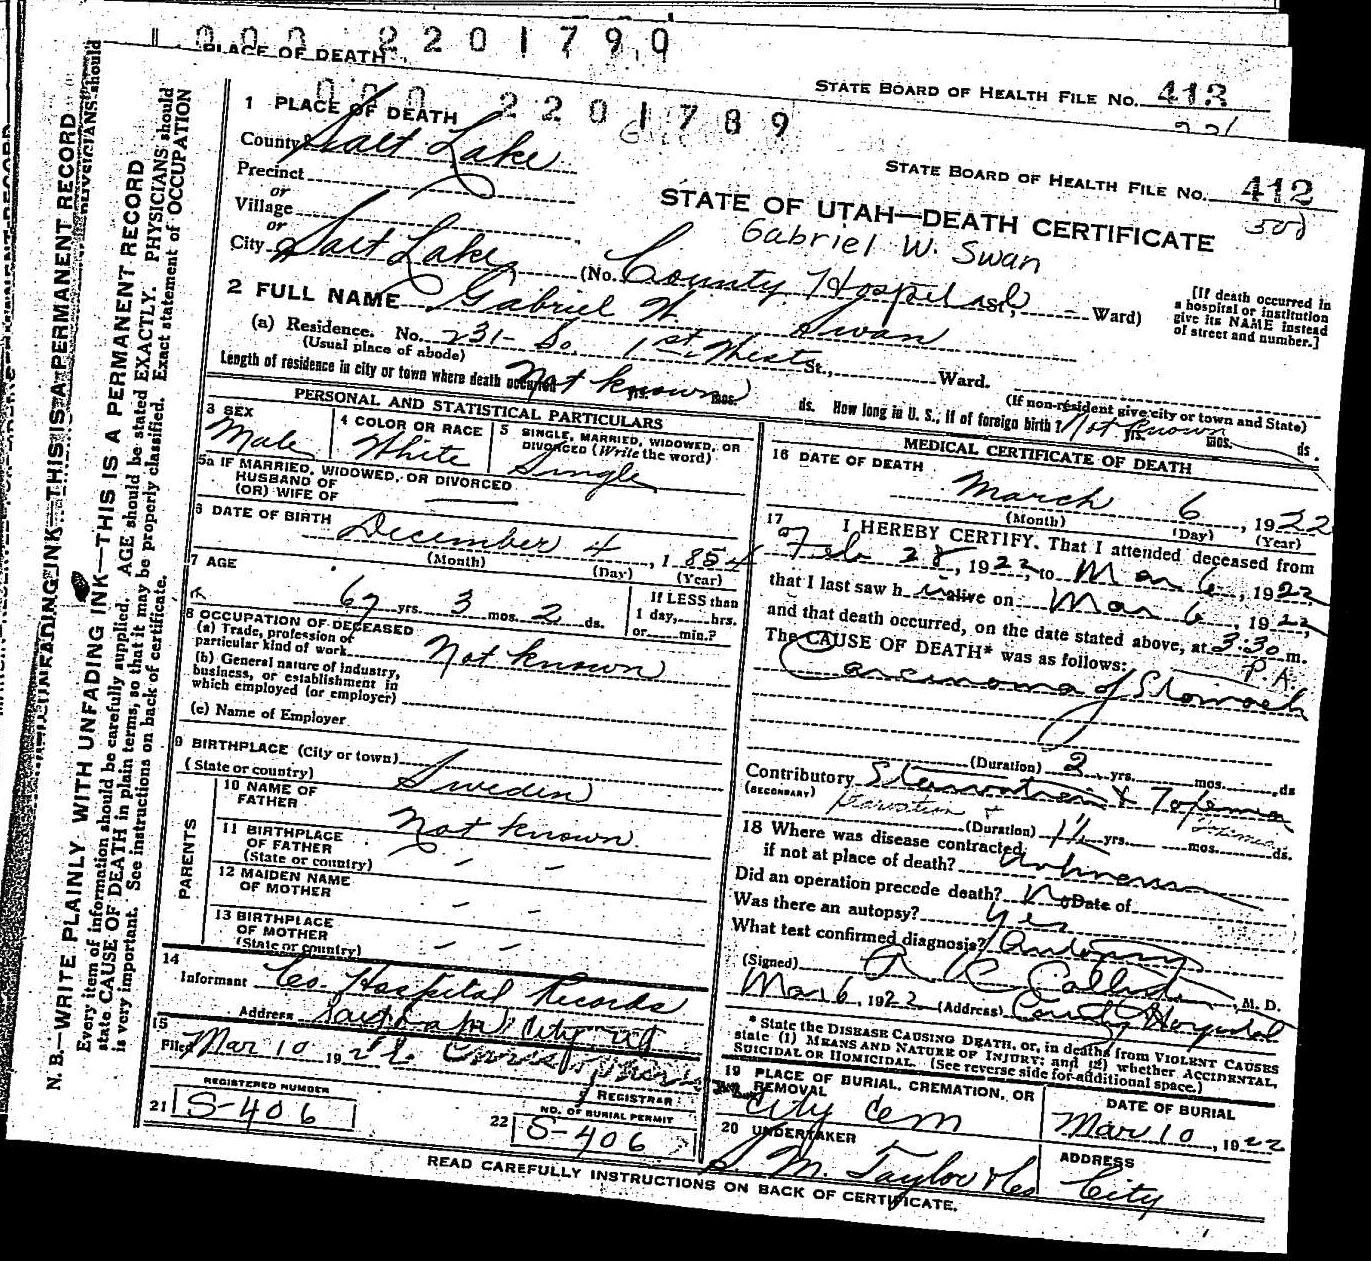 1 000 2201790
PLACE OF DEATH
STATE BOARD OF HEALTH FILE No. 413
000 2201789
STATE BOARD OF HEALTH FILE No. 412
STATE OF UTAH—DEATH CERTIFICATE
Gabriel W. Swan
1 PLACE OF DEATH
County Salt Lake
Precinct
or
Village
or
City Salt Lake (No. County Hospital St., Ward)
[If death occurred in a hospital or institution give its NAME instead of street and number.]
2 FULL NAME Gabriel W. Swan
(a) Residence. No. 231 So. 1st West St., Ward.
(Usual place of abode)
(If non-resident give city or town and State)
Length of residence in city or town where death occurred Not known yrs. mos. ds. How long in U. S., if of foreign birth? Not known yrs. mos. ds.
PERSONAL AND STATISTICAL PARTICULARS
3 SEX
Male
4 COLOR OR RACE
White
5 SINGLE, MARRIED, WIDOWED, OR DIVORCED (Write the word)
Single
5a IF MARRIED, WIDOWED, OR DIVORCED
HUSBAND OF
(OR) WIFE OF
6 DATE OF BIRTH
December 4, 1854
(Month) (Day) (Year)
7 AGE
67 yrs. 3 mos. 2 ds.
If LESS than
1 day, hrs.
or min.?
8 OCCUPATION OF DECEASED
(a) Trade, profession or
particular kind of work Not known
(b) General nature of industry,
business, or establishment in
which employed (or employer)
(c) Name of Employer
9 BIRTHPLACE (City or town)
(State or country) Sweden
PARENTS
10 NAME OF
FATHER Not known
11 BIRTHPLACE
OF FATHER
(State or country)
12 MAIDEN NAME
OF MOTHER
13 BIRTHPLACE
OF MOTHER
(State or country)
14
Informant Co. Hospital Records
Address Salt Lake City
15
Filed Mar 10 192
REGISTRAR
REGISTERED NUMBER
21 S-406
NO. OF BURIAL PERMIT
22 S-406
MEDICAL CERTIFICATE OF DEATH
16 DATE OF DEATH
March 6, 1922
(Month) (Day) (Year)
17 I HEREBY CERTIFY, That I attended deceased from
Feb 28, 1922, to Mar 6, 1922
that I last saw h im alive on Mar 6, 1922,
and that death occurred, on the date stated above, at 3:30 m.
P.
The CAUSE OF DEATH* was as follows:
Carcinoma of Stomach
(Duration) 2 yrs. mos. ds
Contributory Starvation &
(SECONDARY) starvation &
(Duration) 1½ yrs. mos. ds.
18 Where was disease contracted,
if not at place of death? Unknown
Did an operation precede death? No Date of
Was there an autopsy? Yes
What test confirmed diagnosis? Autopsy
(Signed) M. D.
Mar 6, 1922 (Address) County Hospital
* State the DISEASE CAUSING DEATH, or, in deaths from VIOLENT CAUSES
state (1) MEANS AND NATURE OF INJURY; and (2) whether ACCIDENTAL,
SUICIDAL OR HOMICIDAL. (See reverse side for additional space.)
19 PLACE OF BURIAL, CREMATION, OR
REMOVAL
City Cem
DATE OF BURIAL
Mar 10, 1922
20 UNDERTAKER
S. M. Taylor & Co
ADDRESS
City
READ CAREFULLY INSTRUCTIONS ON BACK OF CERTIFICATE.
N. B.—WRITE PLAINLY WITH UNFADING INK—THIS IS A PERMANENT RECORD
Every item of information should be carefully supplied. AGE should be stated EXACTLY. PHYSICIANS should
state CAUSE OF DEATH in plain terms, so that it may be properly classified. Exact statement of OCCUPATION
is very important. See instructions on back of certificate.
UNFADING INK—THIS IS A PERMANENT RECORD
PHYSICIANS should